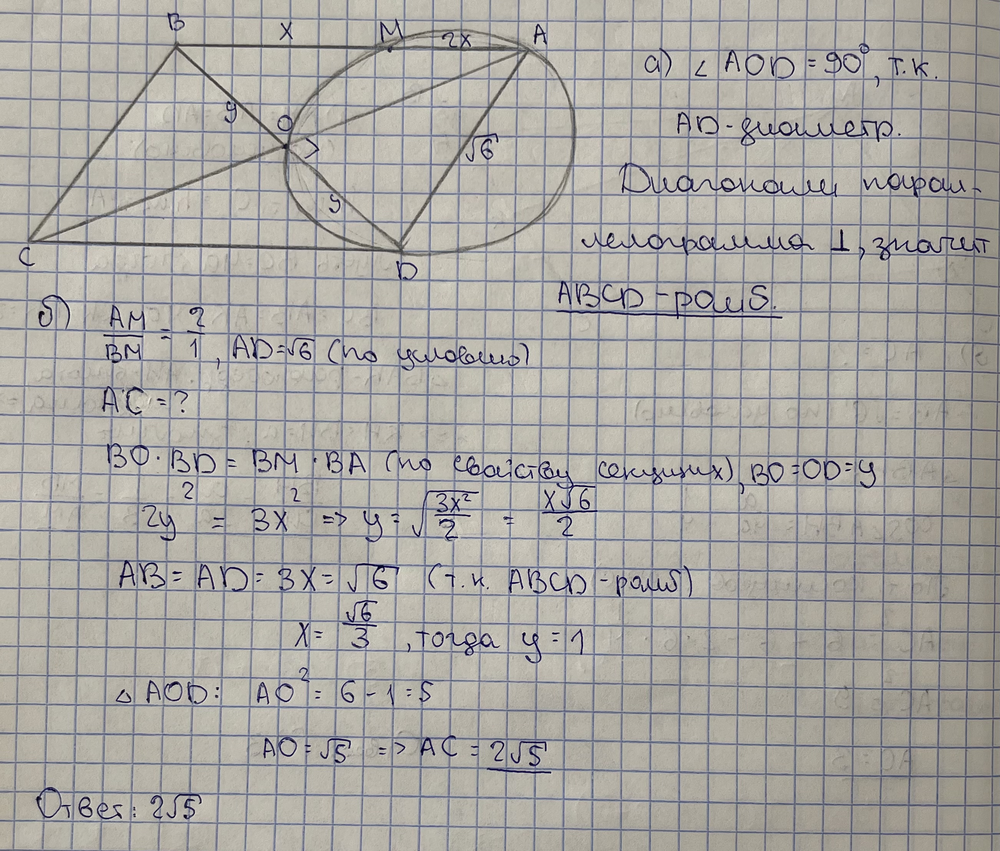 B x M 2x A
y O √6
y
C D
а) ∠ AOD = 90°, т.к.
AD-диаметр.
Диагонали парал-
лелограмма ⊥, значит
ABCD-ромб.
б) AM/BM = 2/1, AD=√6 (по условию)
AC = ?
BO·BD = BM·BA (по свойству секущих), BO=OD=y
2y² = 3x² => y = √(3x²/2) = x√6/2
AB = AD = 3x = √6 (т.к. ABCD-ромб)
x = √6/3, тогда y = 1
△ AOD: AO² = 6 - 1 = 5
AO = √5 => AC = 2√5
Ответ: 2√5